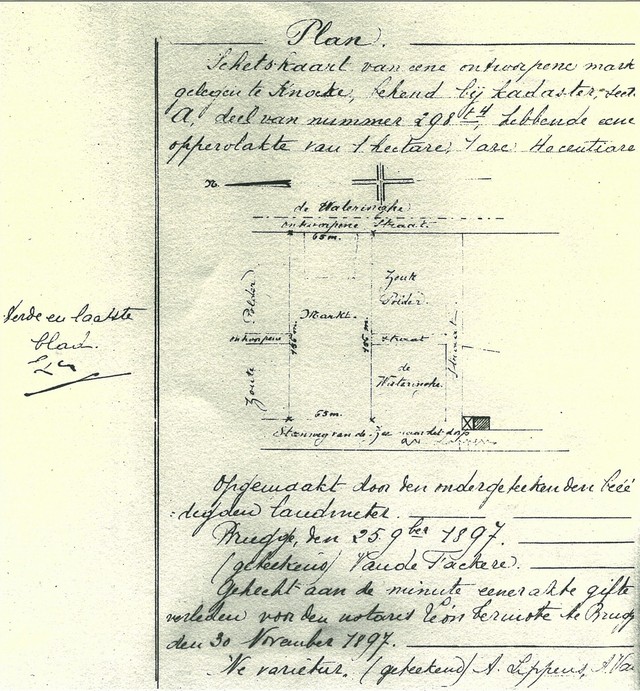 Plan.
Schetskaart van eene ontworpene mark
gelegen te Knocke, bekend bij kadaster, sect.
A, deel van nummer 298 td, hebbende eene
oppervlakte van 1 hectare, 1 are 40 centiare
N.
de Wateringhe
ontworpene Straat.
65 m.
Zoute Polder
Markt.
Zoute
Polder.
ontworpene
166 m.
166 m.
straat
Straat
de
Wateringhe.
63 m.
Steenweg van de Zee naar het dorp
Derde en laatste
blad.
Opgemaakt door den ondergeteekenden beëe
:digden landmeter.
Brugge, den 25 9ber 1897.
(geteekend) Vande Fackere.
Gehecht aan de minute eener akte gifte
verleden voor den notaris Léon Vermote te Brugg
den 30 November 1897.
Ne varietur. (geteekend) A. Lippens, A. Va